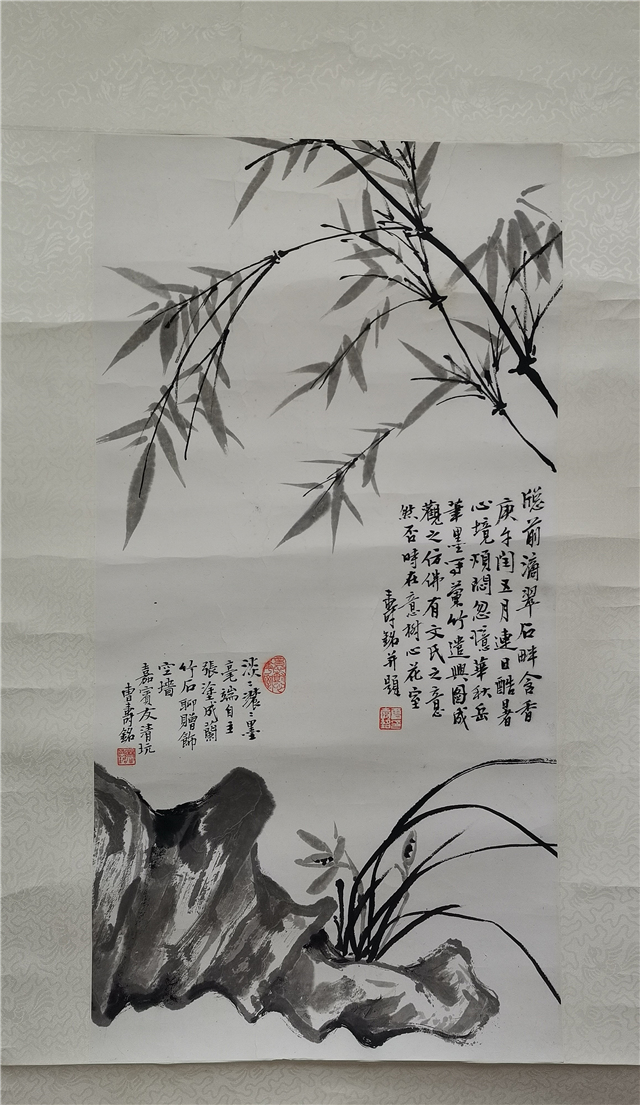 窗前滴翠石畔含香
庚午闰五月連日酷暑
心境煩悶忽憶華秋岳
筆墨寫蘭竹遣興圖成
觀之仿佛有文氏之意
然否時在意樹心花室
壽銘并題
淡淡濃濃墨
毫端自主
張塗成蘭
竹石聊贈飾
空墻
嘉賓友清玩
曹壽銘